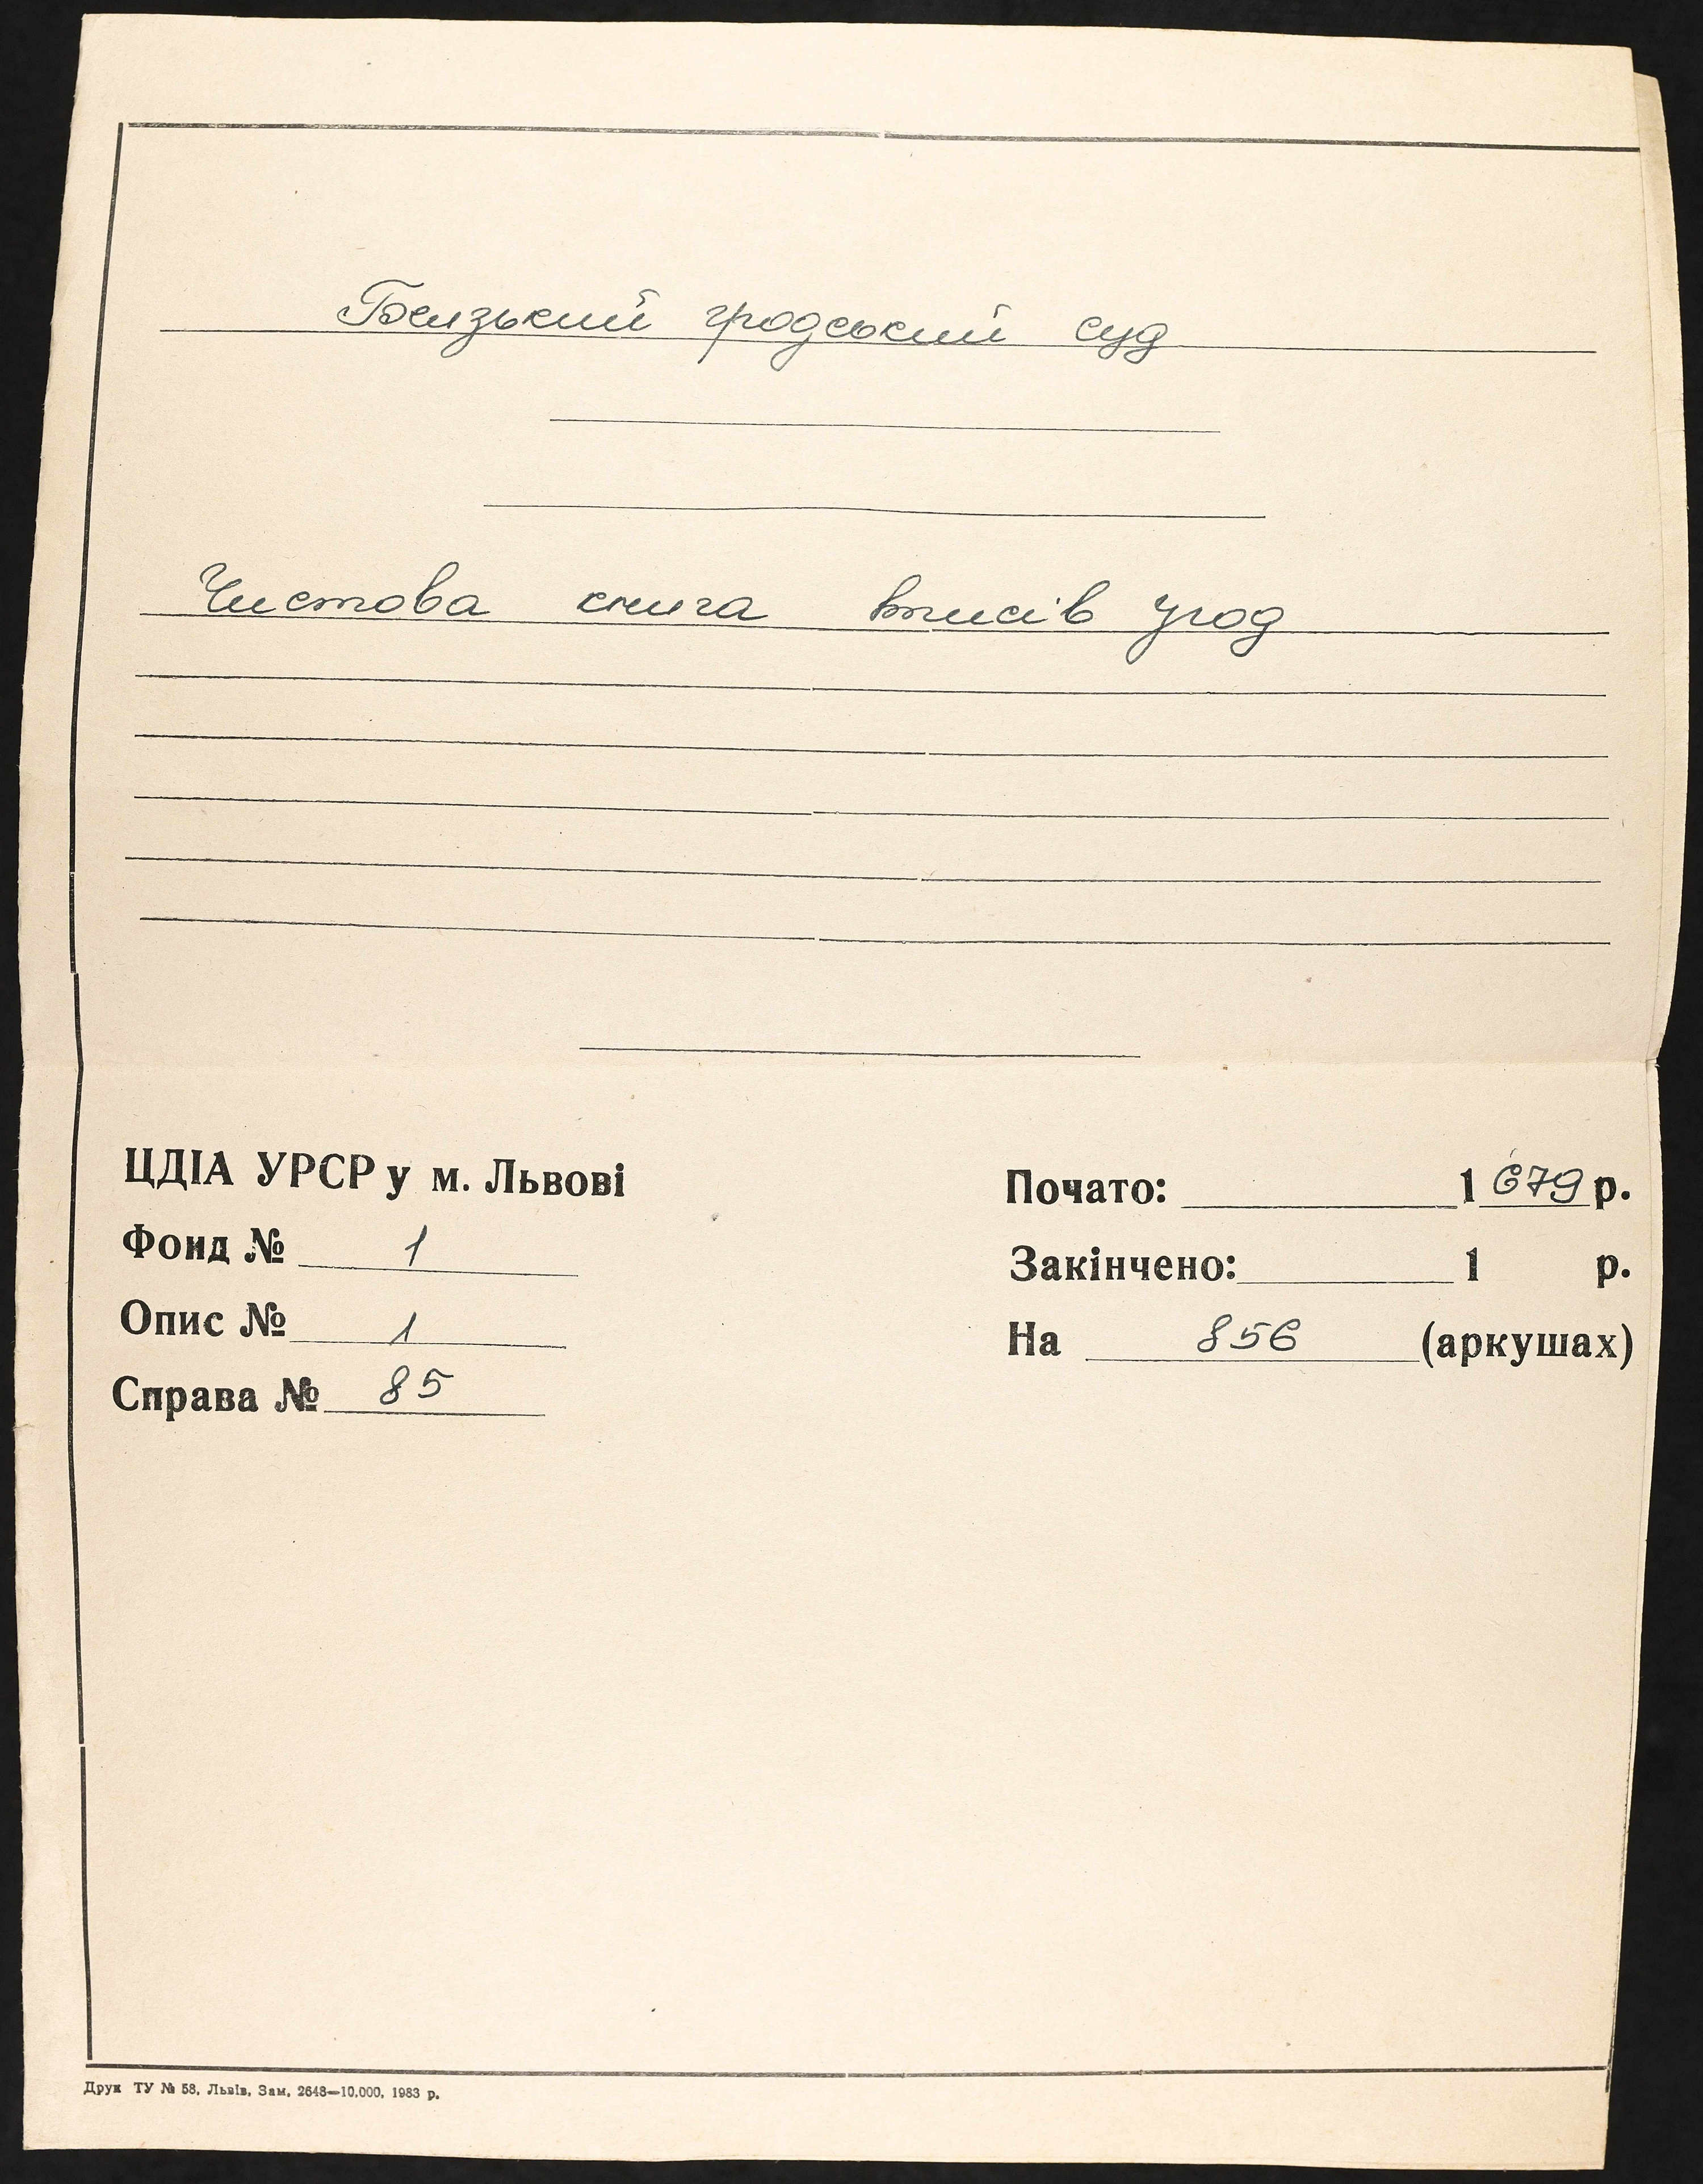 Белзький гродський суд
Чистова книга вписів угод
ЦДІА УРСР у м. Львові
Фонд № 1
Опис № 1
Справа № 85
Почато: 1679 р.
Закінчено: 1 р.
На 856 (аркушах)
Друк ТУ № 58, Львів, Зам. 2648—10.000, 1983 р.